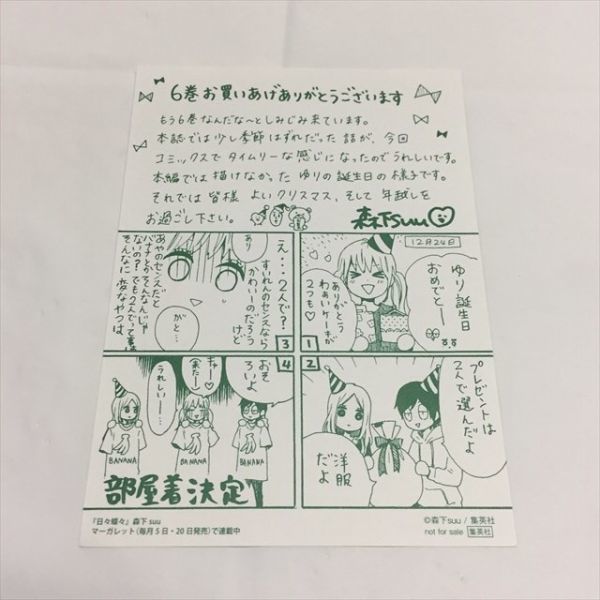 6巻お買いあげありがとうございます
もう6巻なんだな〜としみじみ来ています。
本誌では少し季節はずれだった話が、今回
コミックスでタイムリーな感じになったのでうれしいです。
本編では描けなかったゆりの誕生日の様子です。
それでは皆様 よいクリスマス、そして年越しを
お過ごし下さい。
森下suu
12月24日
ゆり誕生日
おめでとー
ありがとう
わぁいケーキが
2つも
1
プレゼントは
2人で選んだよ
洋服
だよ
2
え…2人で？
すいれんのセンスなら
かわいーのだろう
けど
あり
がと…
あやのセンスだと
バナナとかそんなんじゃ
ないの？でも2人でって事は
そんなに変なやつは
3
おそ
ろいよ
キャー
来たー
うれしいー…
BANANA
BANANA
BANANA
4
部屋着決定
『日々蝶々』森下suu
マーガレット（毎月5日・20日発売）で連載中
©森下suu / 集英社
not for sale 集英社